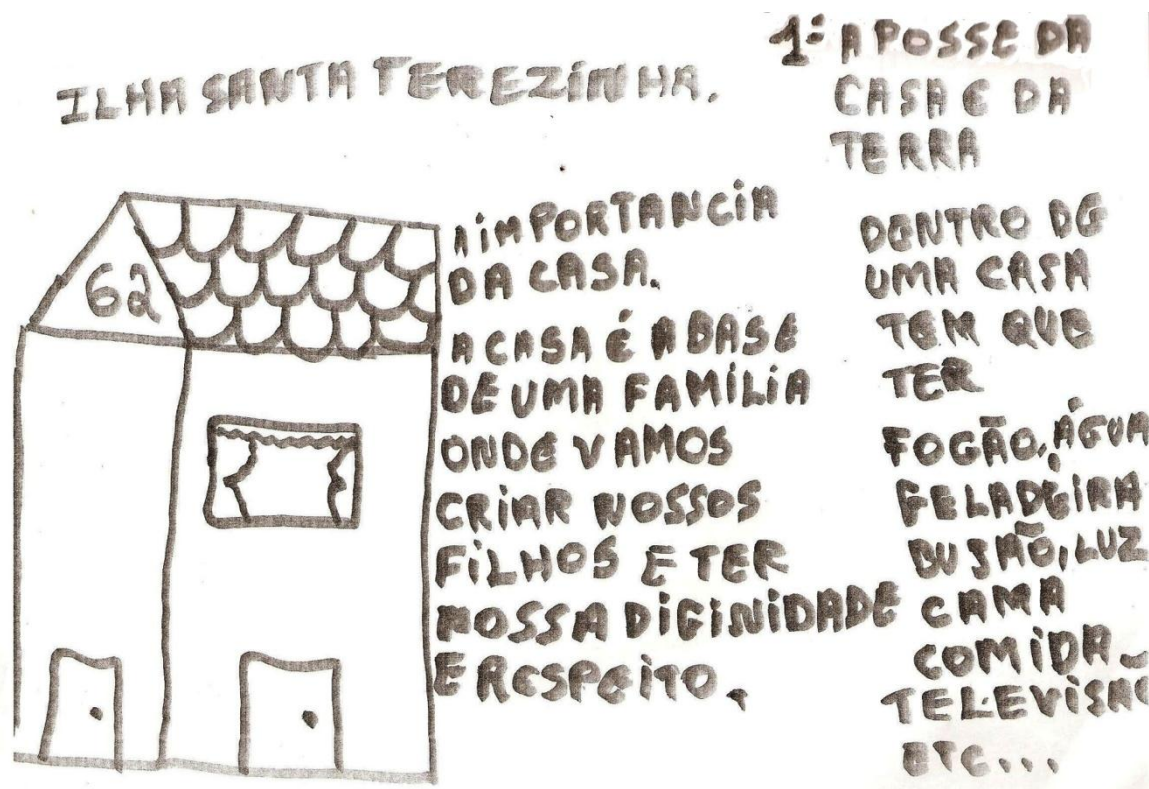 ILHA SANTA TEREZINHA.
62
A IMPORTANCIA
DA CASA.
A CASA É A BASE
DE UMA FAMÍLIA
ONDE VAMOS
CRIAR NOSSOS
FILHOS E TER
NOSSA DIGINIDADE
E RESPEITO.
1ª A POSSE DA
CASA E DA
TERRA
DENTRO DE
UMA CASA
TEM QUE
TER
FOGÃO, ÁGUA
FELADEIRA
BUJÃO, LUZ
CAMA
COMIDA
TELEVISAO
ETC...